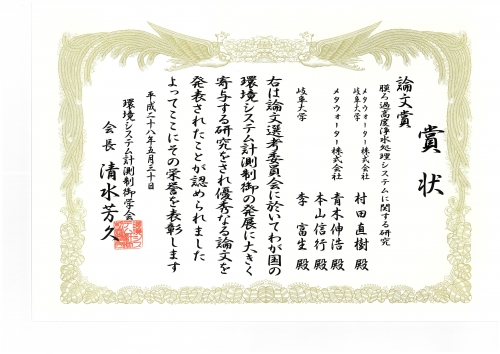 賞状
論文賞
膜ろ過高度浄水処理システムに関する研究
メタウォーター株式会社
岐阜大学
村田直樹殿
メタウォーター株式会社
青木伸浩殿
本山信行殿
岐阜大学
李富生殿
右は論文選考委員会に於いてわが国の
環境システム計測制御の発展に大きく
寄与する研究をされ優秀なる論文を
発表されたことが認められました
よってここにその栄誉を表彰します
平成二十八年五月三十日
環境システム計測制御学会
会長 清水芳久